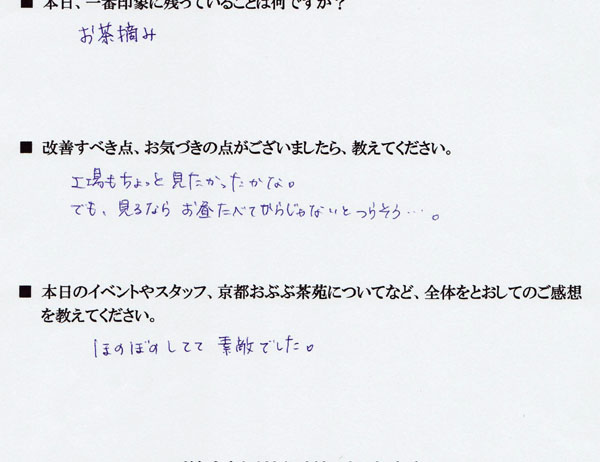 ■ 本日、一番印象に残っていることは何ですか？
お茶摘み
■ 改善すべき点、お気づきの点がございましたら、教えてください。
工場もちょっと見たかったかな。
でも、見るなら お昼たべてからじゃないとつらそう…。
■ 本日のイベントやスタッフ、京都おぶぶ茶苑についてなど、全体をとおしてのご感想
を教えてください。
ほのぼのしてて 素敵でした。